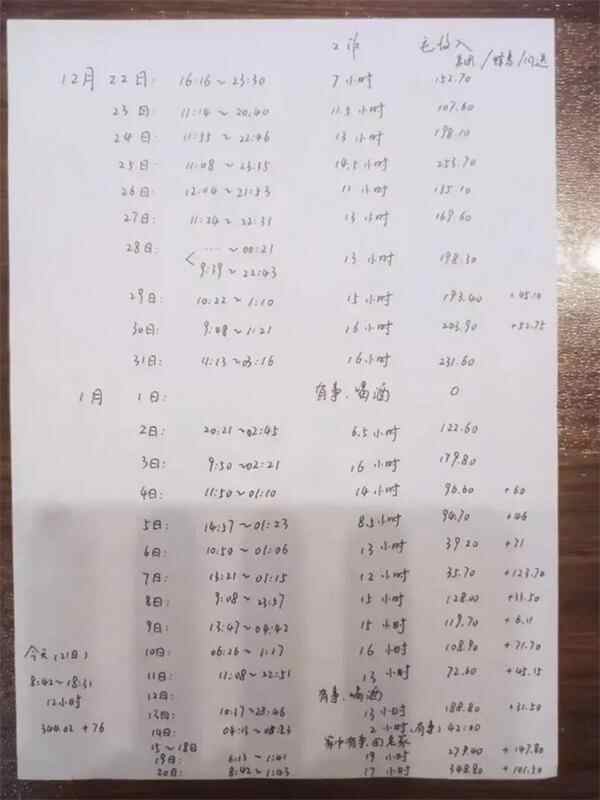 工作 毛收入
美团/蜂鸟/闪送
12月 22日: 16:16~23:30 7小时 152.70
23日: 11:14~20:40 11.5小时 107.60
24日: 11:55~22:46 13小时 198.10
25日: 11:08~23:55 14.5小时 253.70
26日: 12:04~21:53 11小时 135.10
27日: 11:24~22:31 13小时 169.60
28日: < …~00:21 13小时 198.30
9:39~22:43
29日: 10:22~1:10 15小时 193.40 +45.10
30日: 9:08~1:21 16小时 203.90 +52.75
31日: 4:13~03:16 16小时 231.60
1月 1日: 有事、喝酒 0
2日: 20:21~02:45 6.5小时 122.60
3日: 9:50~02:21 16小时 179.80
4日: 11:50~01:10 14小时 96.60 +60
5日: 14:37~01:23 8.5小时 94.70 +46
6日: 10:50~01:06 13小时 39.20 +71
7日: 13:21~01:15 12小时 35.70 +123.70
8日: 9:08~23:57 15小时 128.00 +33.50
9日: 13:47~04:42 15小时 119.70 +6.11
10日: 06:26~1:17 16小时 108.90 +71.70
11日: 11:08~22:51 13小时 72.60 +45.15
12日: 有事、喝酒
13日: 10:37~23:46 13小时 188.80 +31.50
14日: 2小时(有事) 42.00
15~18日 家中有事,回老家
19日: 6:13~1:41 19小时 279.40 +147.80
20日: 8:42~1:43 17小时 348.80 +101.50
今天(21日)
8:42~18:31
12小时
344.02+76